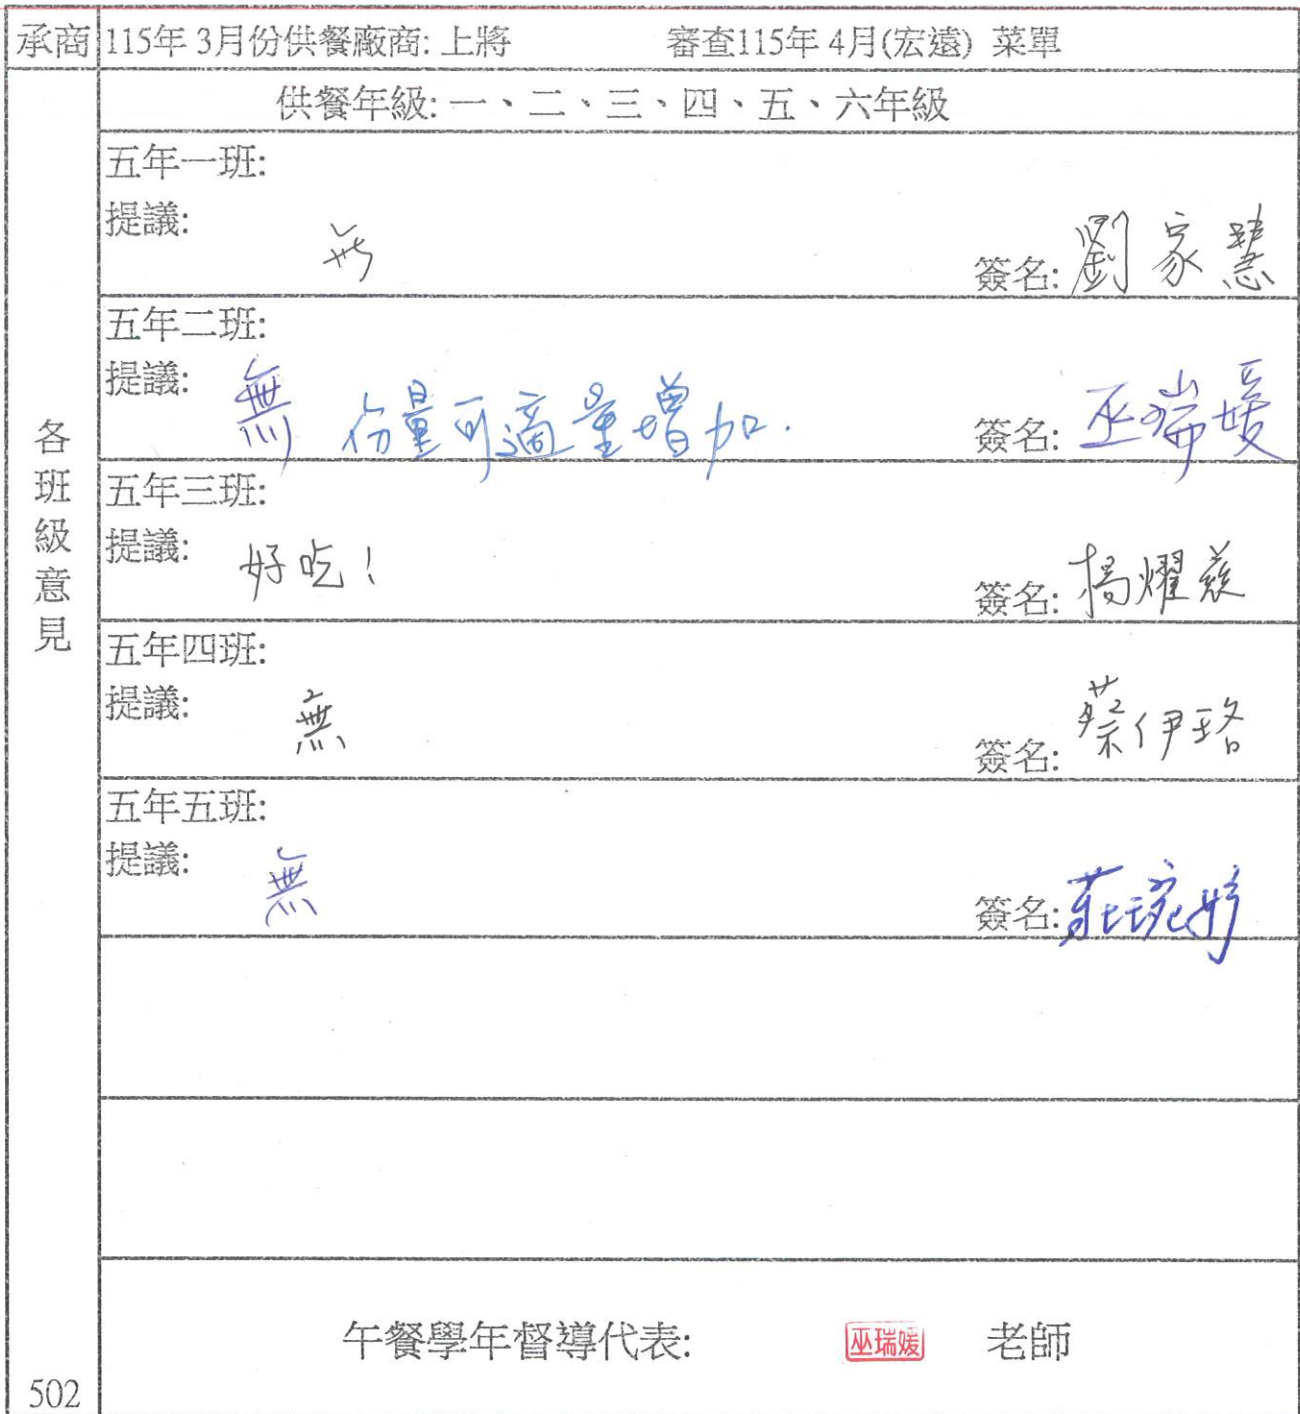 承商 115年 3月份供餐廠商: 上將 審查115年 4月(宏遠) 菜單
供餐年級: 一、二、三、四、五、六年級
各班級意見
五年一班:
提議: 無
簽名: 劉家慧
五年二班:
提議: 無 份量可適量增加.
簽名: 巫瑞媛
五年三班:
提議: 好吃!
簽名: 楊燿
五年四班:
提議: 無
簽名: 蔡伊珞
五年五班:
提議: 無
簽名: 莊琬婷
午餐學年督導代表: 巫瑞媛 老師
502